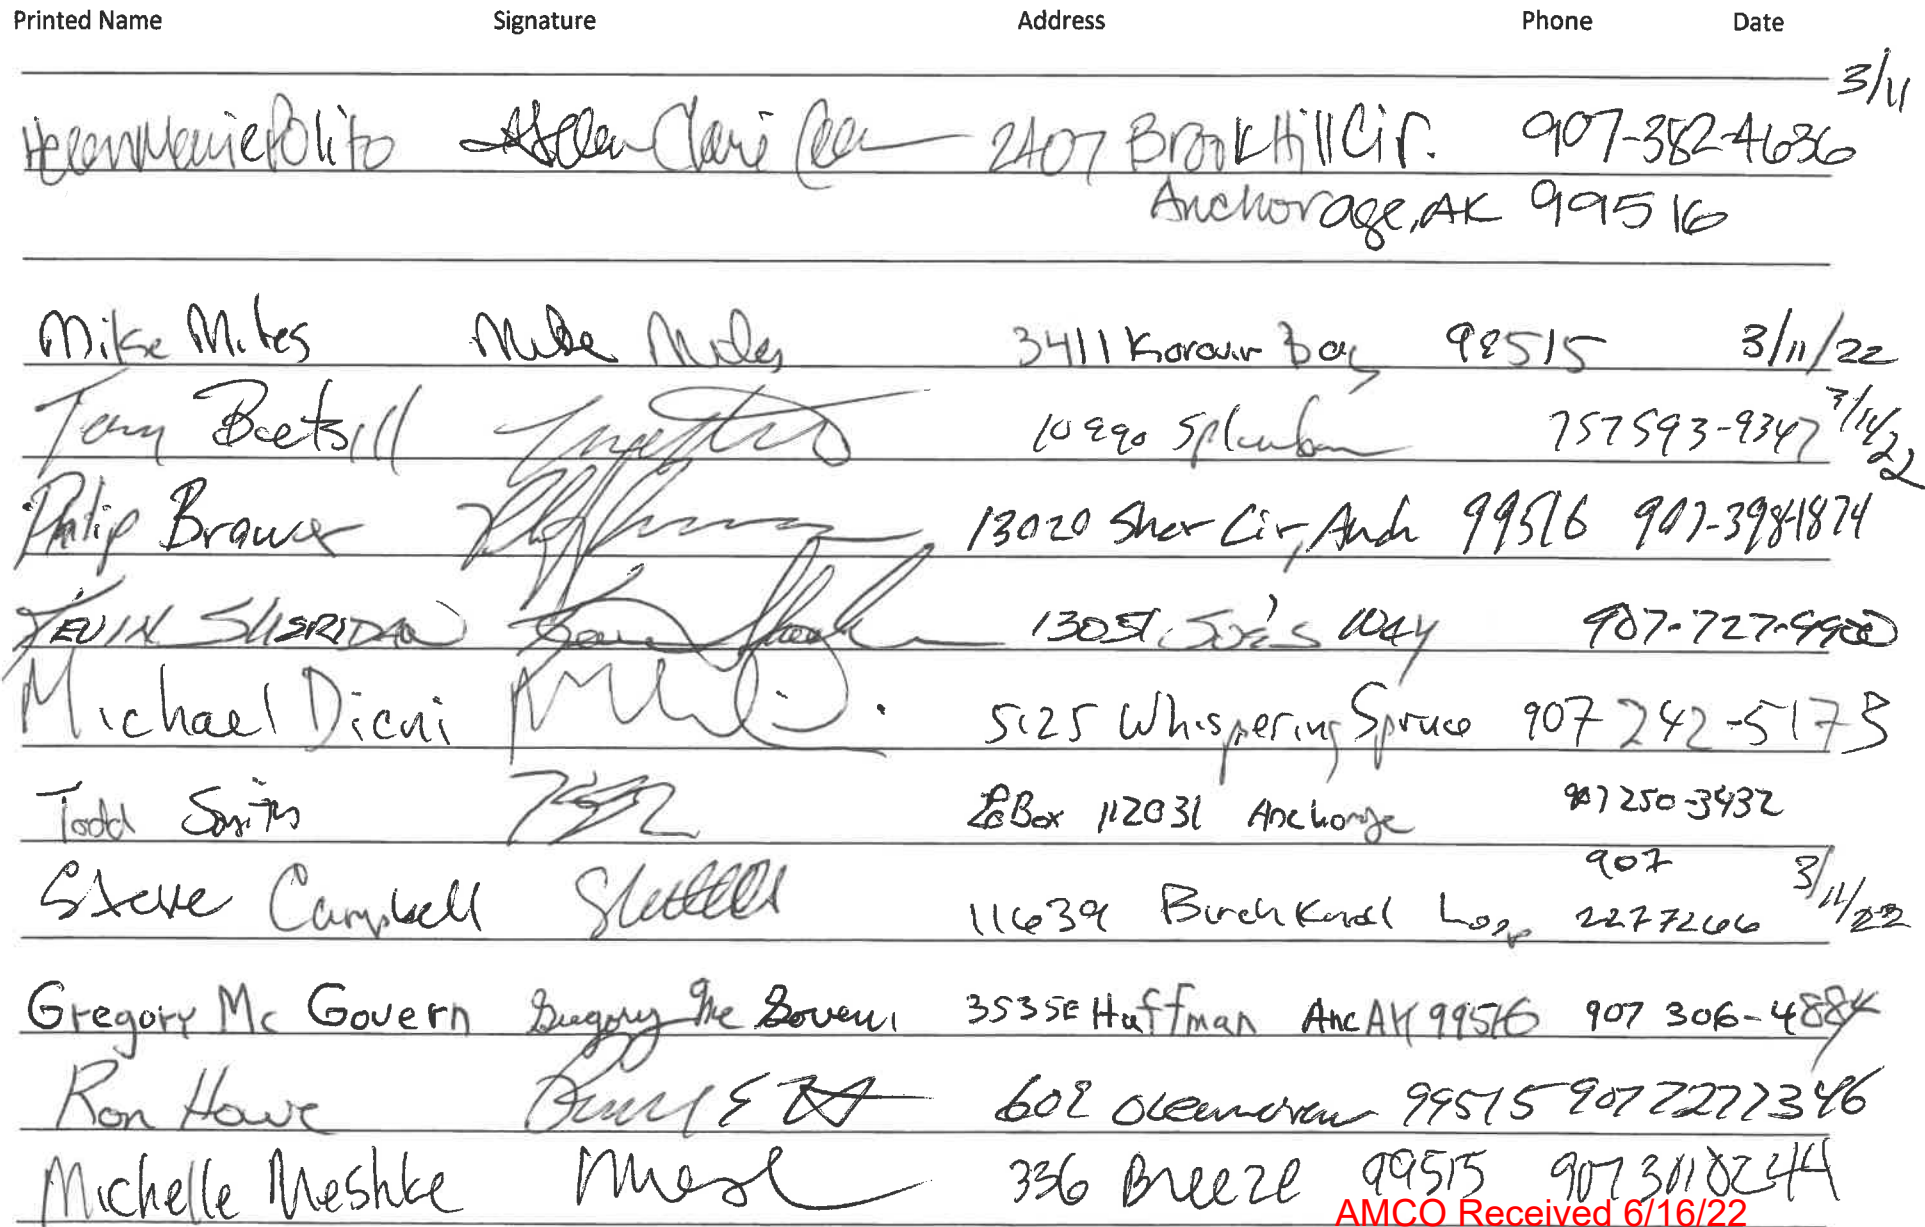 Printed Name Signature Address Phone Date
3/11
Helen Marie Polito 2407 Brook Hill Cir. 907-382-4636
Anchorage, AK 99516
Mike Miles Mike Miles 3411 Bay 99515 3/11/22
Tom 757 593-9347
Philip Brawer 13020 Cir, Anch 99516 907-398-1874
KEVIN SHERIDAN 13051 Joe's Way 907-727-9900
Michael Dicni 5125 Whispering Spruce 907 242-5173
Todd Smith PO Box 112031 Anchorge 907 250-3432
907
Steve Campbell 11639 Birch Loop 2277266 3/11/22
Gregory Mc Govern Gregory Mc Govern 3535 E Huffman Anc AK 99516 907 306-4884
Ron Howe 602 Oceanview 99515 907 2272346
Michelle Meshke 336 Breeze 99515 907 3010244
AMCO Received 6/16/22